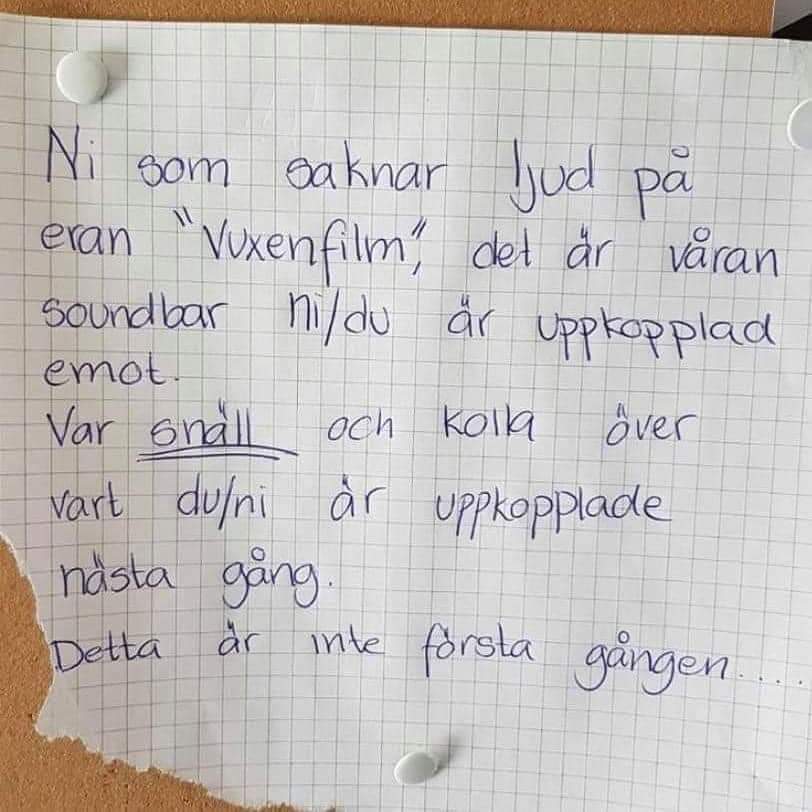 Ni som saknar ljud på
eran "Vuxenfilm", det är våran
soundbar ni/du är uppkopplad
emot.
Var snäll och kolla över
vart du/ni är uppkopplade
nästa gång.
Detta är inte första gången.....